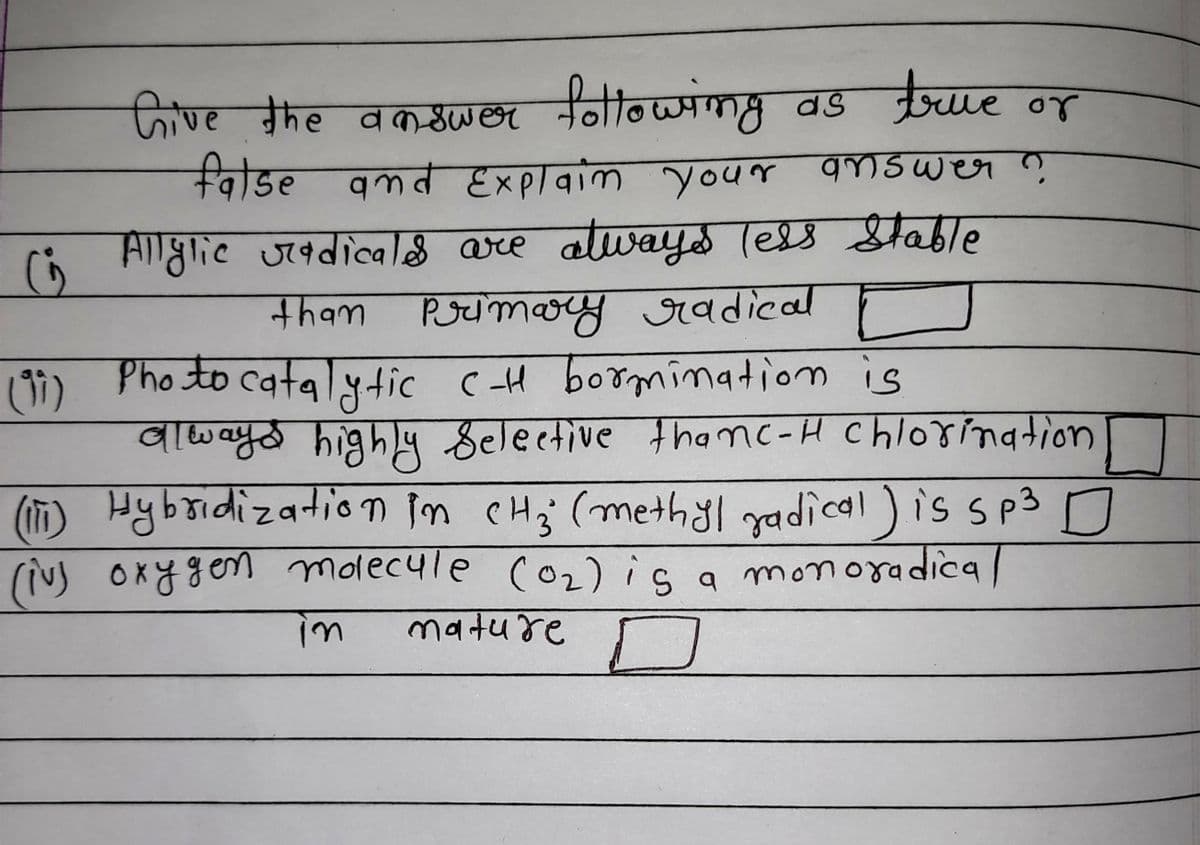 Give the answer following as true or
false and Explain your answer ?
(i) Allylic radicals are always less Stable
than Primary radical
(ii) Photocatalytic C-H bormination is
always highly Selective than C-H chlorination
(iii) Hybridization in CH3• (methyl radical) is sp3
(iv) oxygen molecule (O2) is a monoradical
in nature